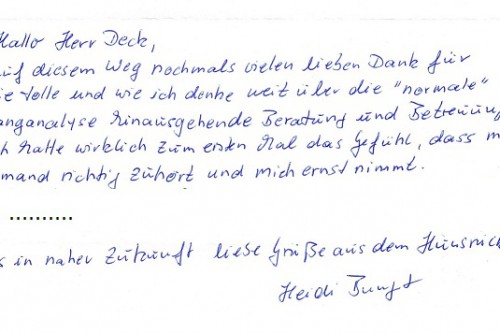 Hallo Herr Deck,
auf diesem Weg nochmals vielen lieben Dank für
ie tolle und wie ich denke weit über die "normale"
anganalyse hinausgehende Beratung und Betreuung
ch hatte wirklich zum ersten Mal das Gefühl, dass m
mand richtig zuhört und mich ernst nimmt.
..........
s in naher Zukunft liebe Grüße aus dem Hunsrück
Heidi